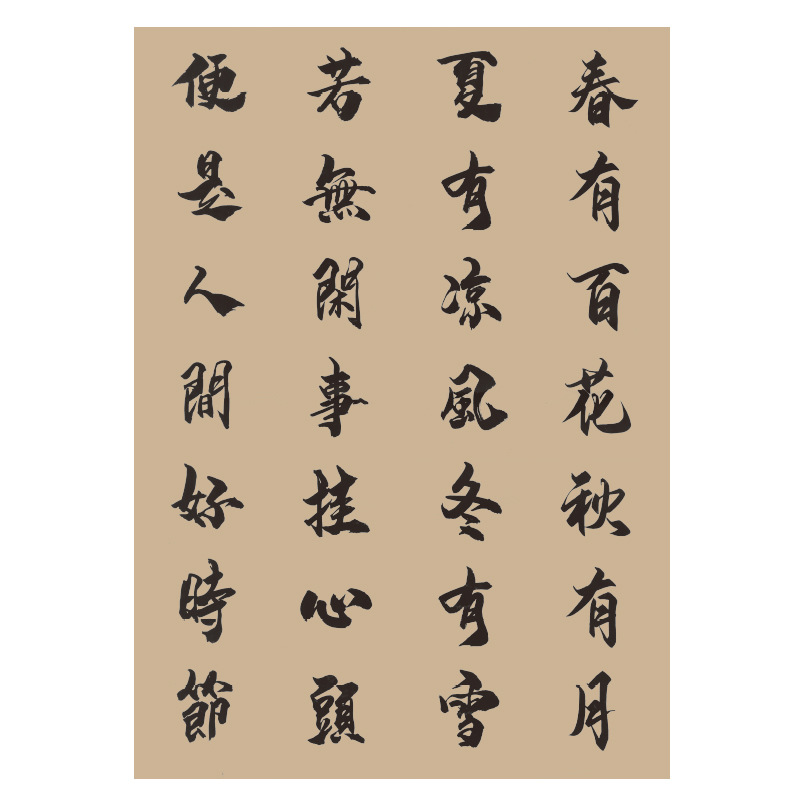 春有百花秋有月
夏有凉風冬有雪
若無閑事挂心頭
便是人間好時節